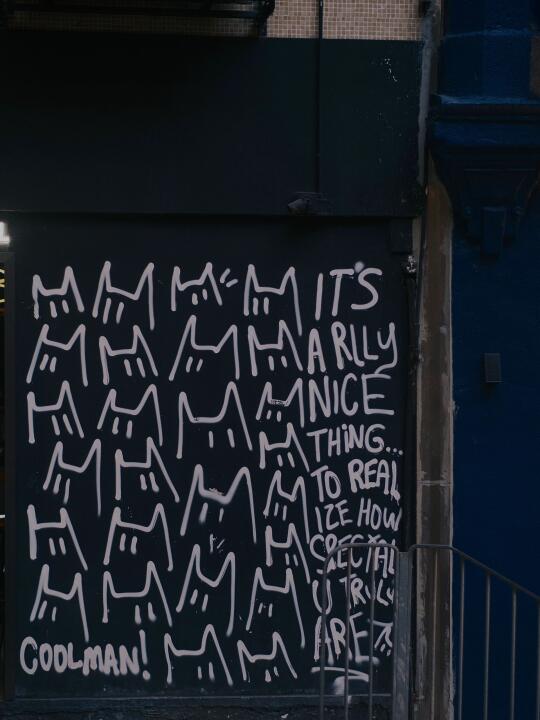 IT'S
A RLLY
NICE
THING...
TO REAL
IZE HOW
SPECIAL
U TRULY
ARE
COOLMAN!